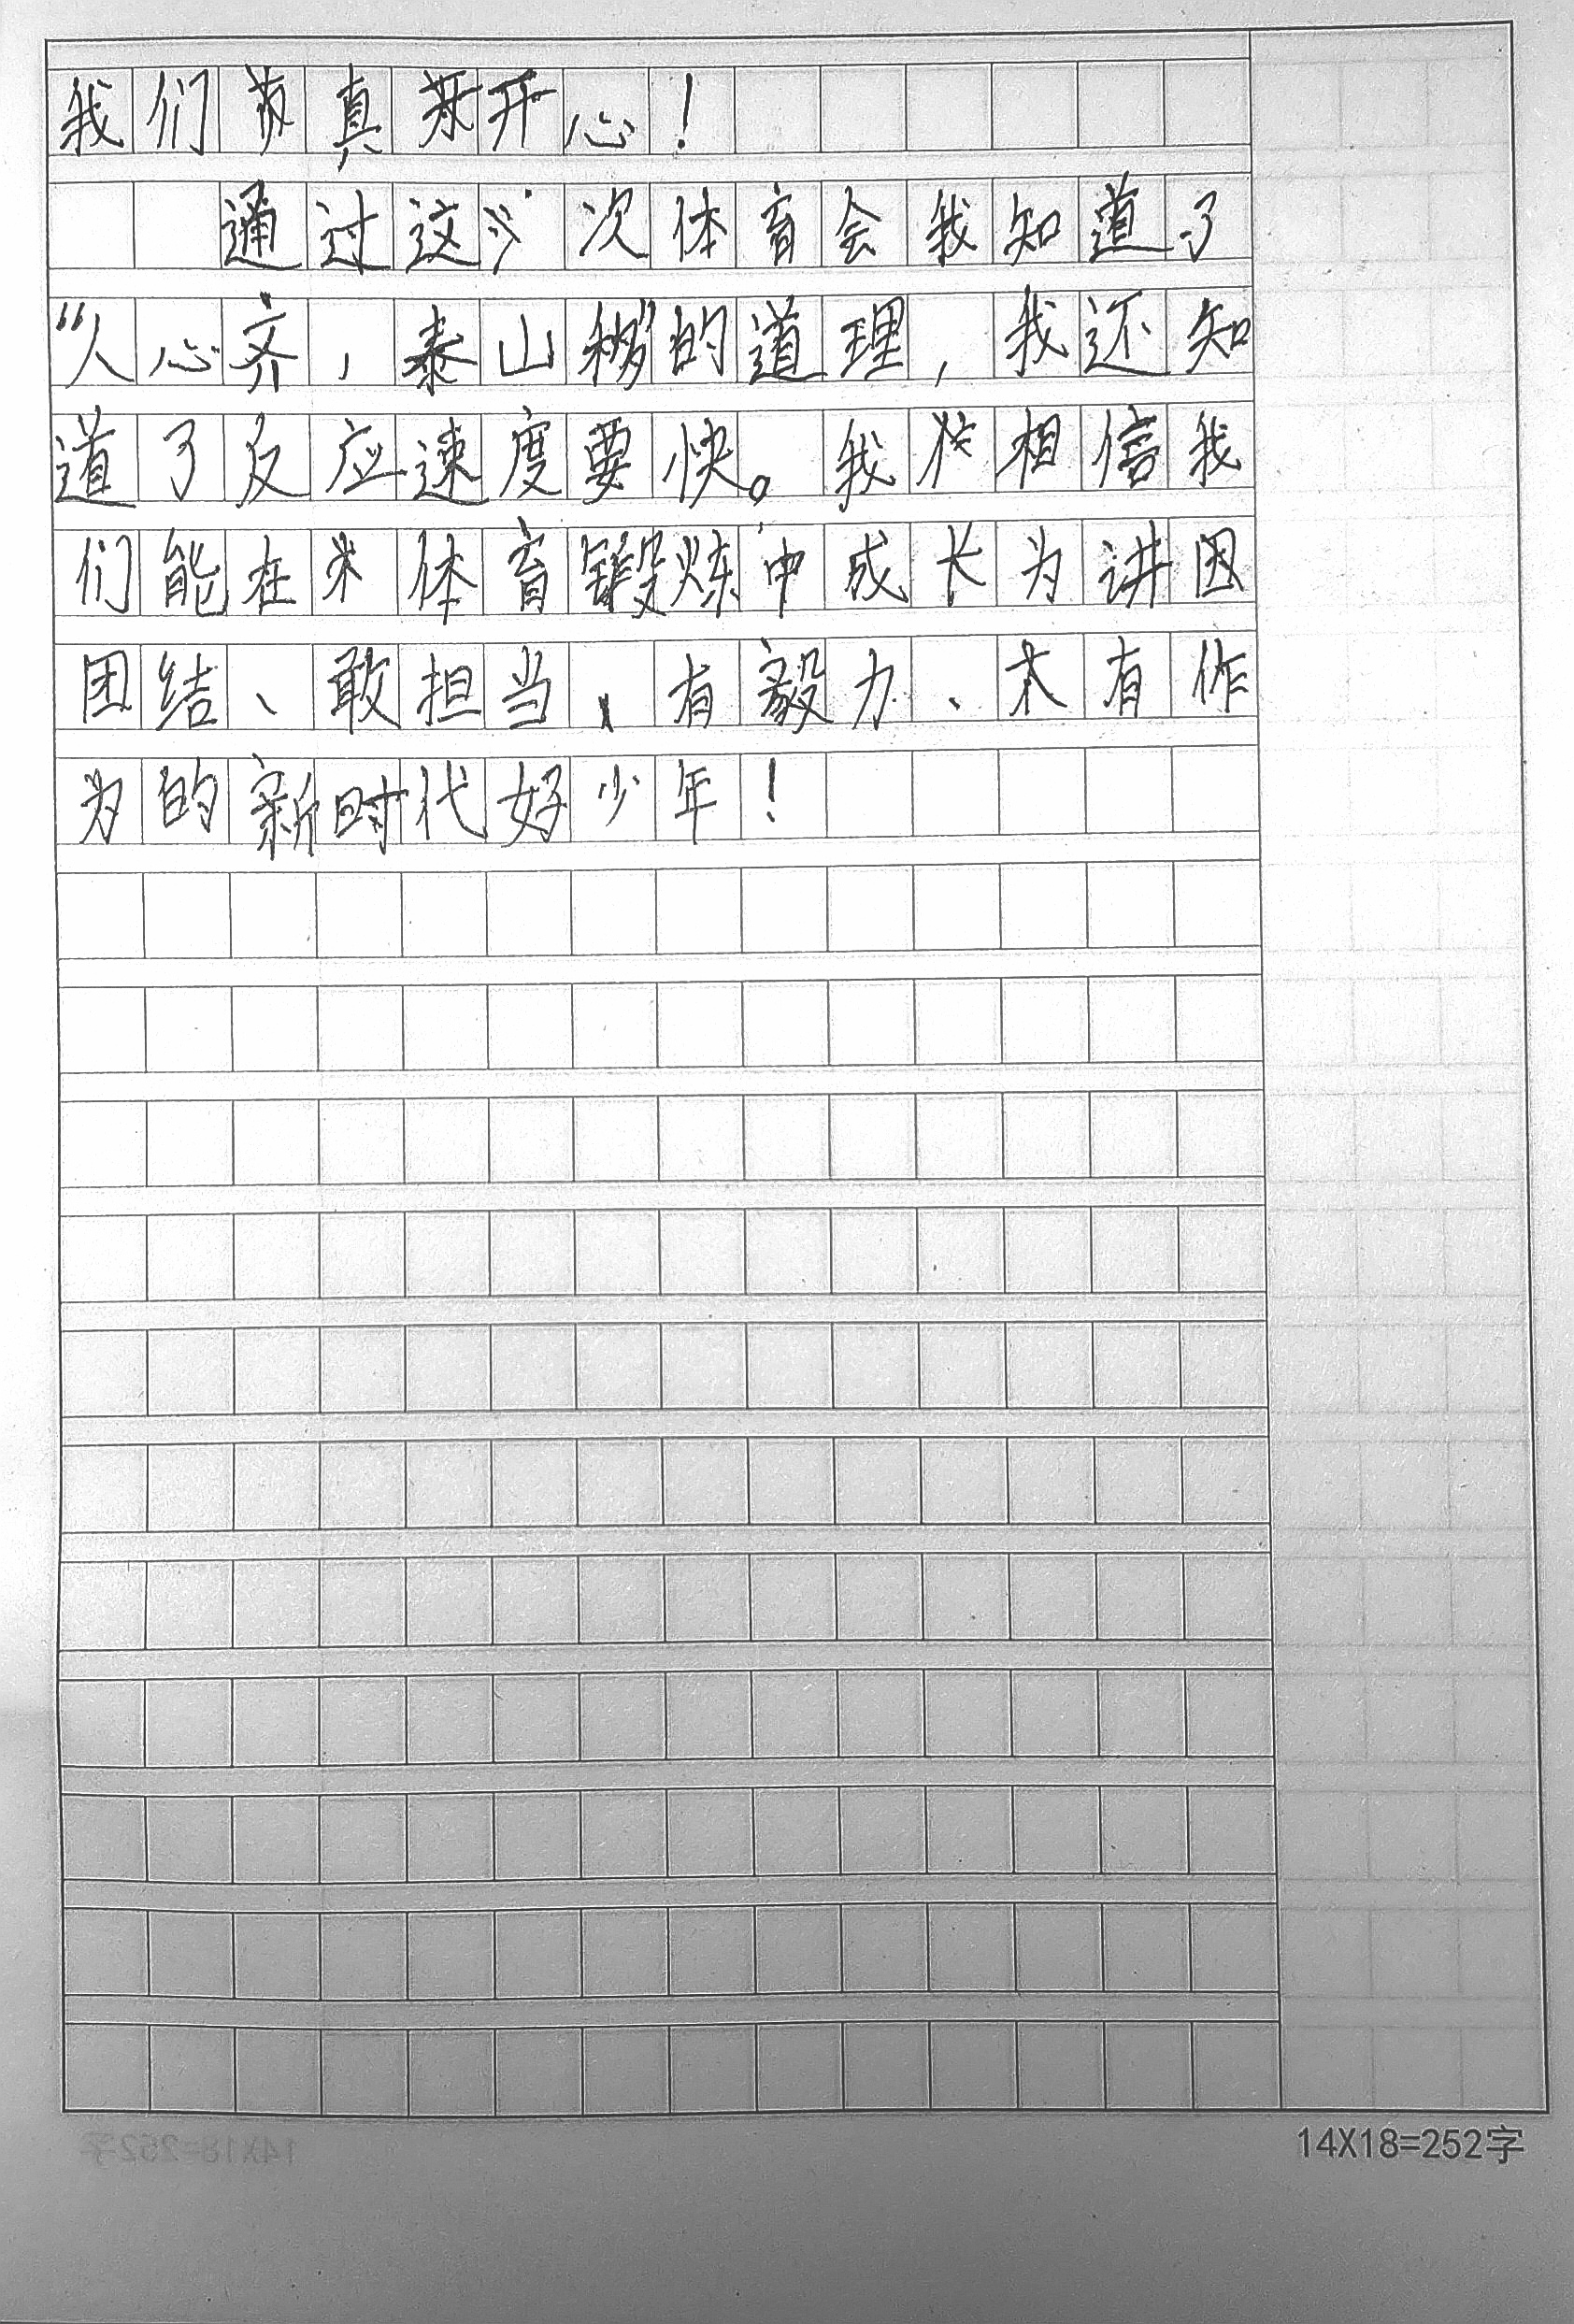 我们真开心！
通过这次体育会我知道了
“人心齐，泰山移”的道理，我还知
道了反应速度要快。我相信我
们能在体育锻炼中成长为讲
团结、敢担当、有毅力、有作
为的新时代好少年！
14X18=252字